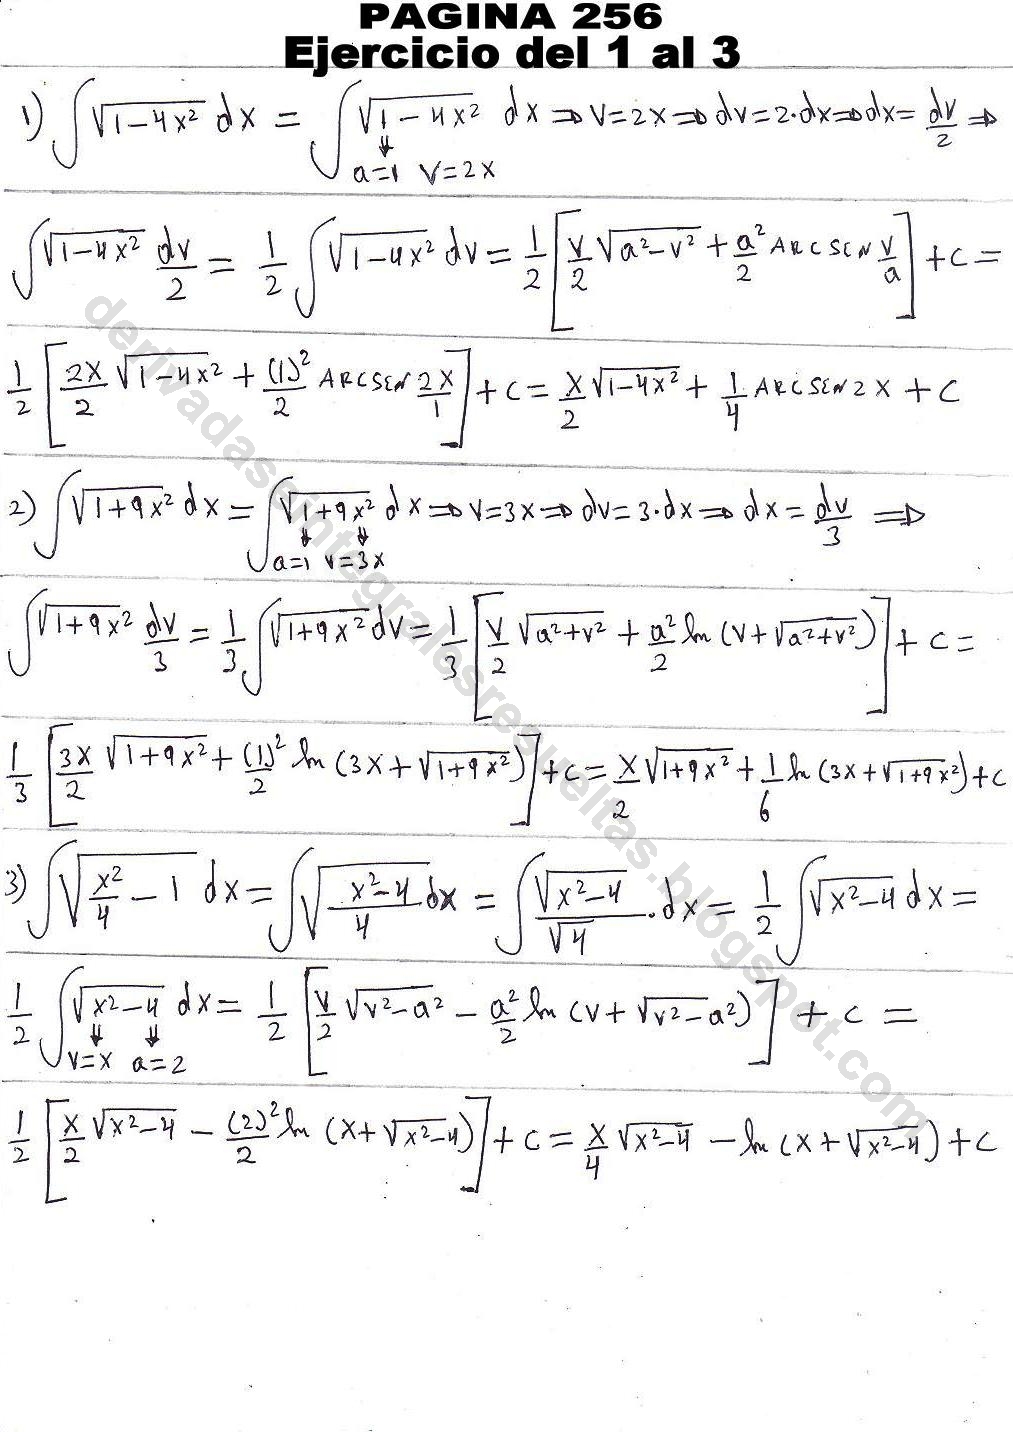 PAGINA 256
Ejercicio del 1 al 3
1) ∫√(1-4x²) dx = ∫√(1-4x²) dx ⇒ v=2x ⇒ dv=2·dx ⇒ dx= dv/2 ⇒
a=1 v=2x
∫√(1-4x²) dv/2 = 1/2 ∫√(1-4x²) dv = 1/2 [v/2 √(a²-v²) + a²/2 ARCSEN v/a] + c =
1/2 [2x/2 √(1-4x²) + (1)²/2 ARCSEN 2x/1] + c = x/2 √(1-4x²) + 1/4 ARCSEN 2x + c
2) ∫√(1+9x²) dx = ∫√(1+9x²) dx ⇒ v=3x ⇒ dv=3·dx ⇒ dx = dv/3 ⇒
a=1 v=3x
∫√(1+9x²) dv/3 = 1/3 ∫√(1+9x²) dv = 1/3 [v/2 √(a²+v²) + a²/2 ln (v+√(a²+v²))] + c =
1/3 [3x/2 √(1+9x²) + (1)²/2 ln (3x+√(1+9x²))] + c = x/2 √(1+9x²) + 1/6 ln (3x+√(1+9x²)) + c
3) ∫√(x²/4 - 1) dx = ∫√((x²-4)/4) dx = ∫ √(x²-4)/√4 · dx = 1/2 ∫√(x²-4) dx =
1/2 ∫√(x²-4) dx = 1/2 [v/2 √(v²-a²) - a²/2 ln (v+√(v²-a²))] + c =
v=x a=2
1/2 [x/2 √(x²-4) - (2)²/2 ln (x+√(x²-4))] + c = x/4 √(x²-4) - ln (x+√(x²-4)) + c
derivadaseintegralesresueltas.blogspot.com